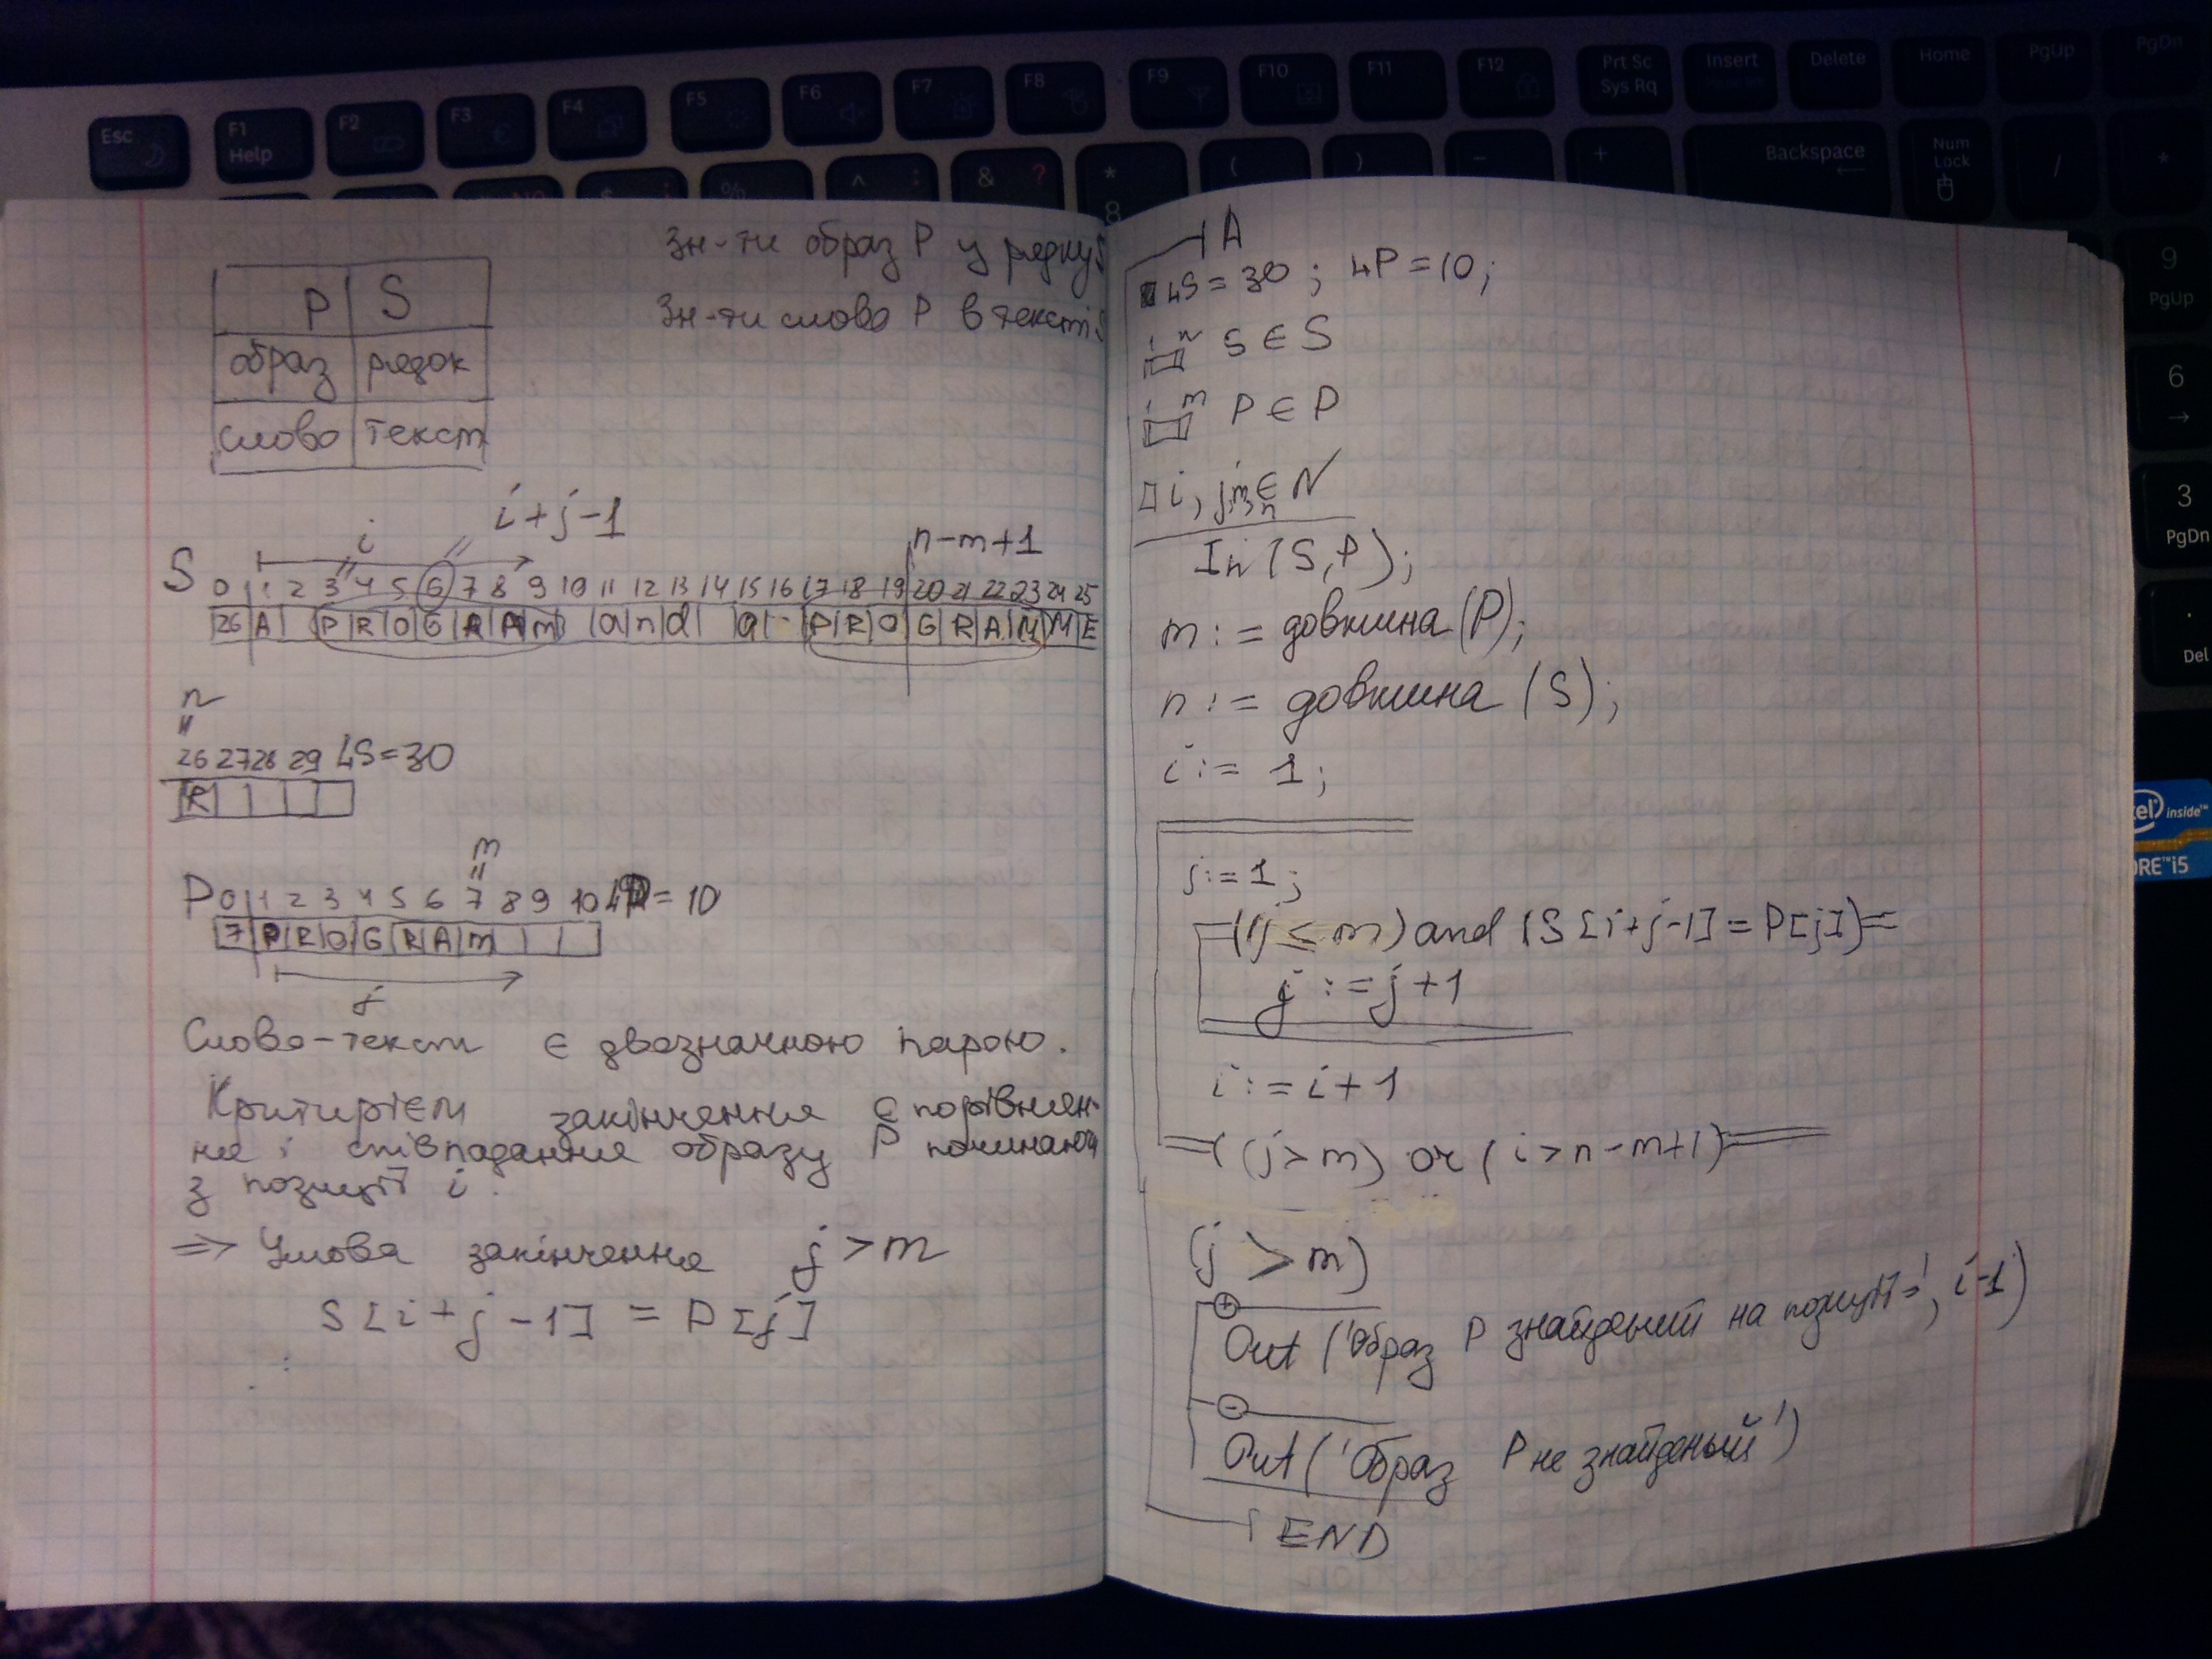 Esc
F1 Help
F2
F3
F4
F5
F6
F7
F8
F9
F10
F11
F12
Prt Sc Sys Rq
Insert
Delete
Home
PgUp
PgDn
% ^ : & ? * 8 ( ) - +
Backspace
Num Lock
/ *
9 PgUp
6 →
3 PgDn
. Del
intel inside™
CORE™ i5
Зн-ти образ P у рядку S
Зн-ти слово P в тексті S
P | S
образ | рядок
слово | текст
i
i+j-1
n-m+1
S 0 1 2 3 4 5 6 7 8 9 10 11 12 13 14 15 16 17 18 19 20 21 22 23 24 25
26 A P R O G R A m a n d a P R O G R A M M E
n
=
26 27 28 29 LS=30
R
m
=
P 0 1 2 3 4 5 6 7 8 9 10 LP = 10
7 P R O G R A m
j
Слово-текст є двозначною парою.
Критирієм закінчення є порівнян-
ня і співпадання образу P починаючи
з позиції i.
⇒ Умова закінчення j > m
S[i+j-1] = P[j]
A
LS=30; LP=10;
i n S ∈ S
i m P ∈ P
□ i, j, m, n ∈ N
In (S,P);
m := довжина (P);
n := довжина (S);
i := 1;
j := 1;
(j ≤ m) and (S[i+j-1] = P[j])
j := j+1
i := i+1
((j>m) or (i>n-m+1)
(j > m)
+
Out ('Образ P знайдений на позиції=', i-1)
-
Out ('Образ P не знайденый')
END